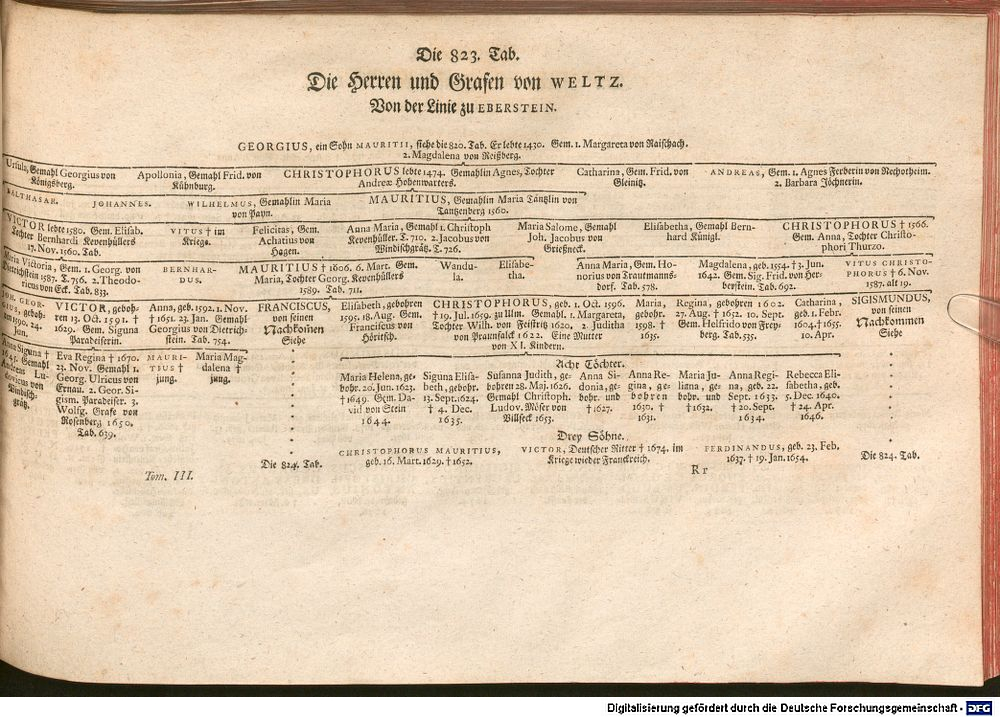 Die 823. Tab.
Die Herren und Grafen von WELTZ.
Von der Linie zu EBERSTEIN.
GEORGIUS, ein Sohn MAURITII, siehe die 820. Tab. Er lebte 1430. Gem. 1. Margareta von Raischach.
2. Magdalena von Reißberg.
Ursula, Gemahl Georgius von
Königsberg.
Apollonia, Gemahl Frid. von
Kühnburg.
CHRISTOPHORUS lebte 1474. Gemahlin Agnes, Tochter
Andreæ Hohenwarters.
Catharina, Gem. Frid. von
Gleinitz.
ANDREAS, Gem. 1. Agnes Ferberin von Rechotheim.
2. Barbara Jöchnerin.
BALTHASAR.
JOHANNES.
WILHELMUS, Gemahlin Maria
von Payn.
MAURITIUS, Gemahlin Maria Tänzlin von
Tantzenberg 1560.
VICTOR lebte 1580. Gem. Elisab.
Tochter Bernhardi Kevenhüllers
17. Nov. 1560. Tab.
VITUS † im
Kriege.
Felicitas, Gem.
Achatius von
Hagen.
Anna Maria, Gemahl 1. Christoph
Kevenhüller. T. 710. 2. Jacobus von
Windischgrätz. T. 726.
Maria Salome, Gemahl
Joh. Jacobus von
Grießneck.
Elisabetha, Gemahl Bern-
hard Künigl.
CHRISTOPHORUS † 1566.
Gem. Anna, Tochter Christo-
phori Thurzo.
Maria Victoria, Gem. 1. Georg. von
Dietrichstein 1587. T. 756. 2. Theodo-
ricus von Eck. Tab. 833.
BERNHAR-
DUS.
MAURITIUS † 1606. 6. Mart. Gem.
Maria, Tochter Georg. Kevenhüllers
1589. Tab. 711.
Wandu-
la.
Elisabe-
tha.
Anna Maria, Gem. Ho-
norius von Trautmanns-
dorf. Tab. 578.
Magdalena, geb. 1554. † 3. Jun.
1642. Gem. Sig. Frid. von Her-
berstein. Tab. 692.
VITUS CHRISTO-
PHORUS † 6. Nov.
1587. alt 19.
JOH. GEOR-
GIUS, gebohr-
en 1590. 24.
Jun.
VICTOR, geboh-
ren 13. Oct. 1591. †
1629. Gem. Siguna
Paradeiserin.
Anna, geb. 1592. 1. Nov.
† 1651. 23. Jan. Gemahl
Georgius von Dietrich-
stein. Tab. 754.
FRANCISCUS,
von seinen
Nachkommen
Siehe
Elisabeth, gebohren
1595. 18. Aug. Gem.
Franciscus von
Höritsch.
CHRISTOPHORUS, geb. 1. Oct. 1596.
† 19. Jul. 1659. zu Ulm. Gemahl. 1. Margareta,
Tochter Wilh. von Feistritz 1620, 2. Juditha
von Praunfalck 1622. Eine Mutter
von XI. Kindern.
Maria,
gebohr.
1598. †
1635.
Regina, gebohren 1602.
27. Aug. † 1652. 10. Sept.
Gem. Helfrido von Frey-
berg. Tab. 535.
Catharina,
geb. 1. Febr.
1604. † 1655.
10. Apr.
SIGISMUNDUS,
von seinen
Nachkommen
Siehe
Anna Siguna †
1645. Gemahl
Andreas Lu-
dovicus von
Windisch-
grätz.
Eva Regina † 1670.
23. Nov. Gemahl 1.
Georg. Ulricus von
Ernau. 2. Geor. Si-
gism. Paradeiser. 3.
Wolfg. Grafe von
Rosenberg 1650.
Tab. 639.
MAURI-
TIUS †
jung.
Maria Mag-
dalena †
jung.
Acht Töchter.
Maria Helena, ge-
bohr. 20. Jun. 1623.
† 1649. Gem. Da-
vid von Stein
1644.
Siguna Elisa-
beth, gebohr.
13. Sept. 1624.
† 4. Dec.
1635.
Susanna Judith, ge-
bohren 28. Maj. 1626.
Gemahl Christoph.
Ludov. Möser von
Villseck 1653.
Anna Si-
donia, ge-
bohr. und
† 1627.
Anna Re-
gina, ge-
bohren
1630. †
1631.
Maria Ju-
liana, ge-
bohr. und
† 1632.
Anna Regi-
na, geb. 22.
Sept. 1633.
† 20. Sept.
1634.
Rebecca Eli-
sabetha, geb.
5. Dec. 1640.
† 24. Apr.
1646.
Drey Söhne.
CHRISTOPHORUS MAURITIUS,
geb. 16. Mart. 1629. † 1652.
VICTOR, Deutscher Ritter † 1674. im
Kriege wieder Franckreich.
FERDINANDUS, geb. 23. Feb.
1637. † 19. Jan. 1654.
Die 824. Tab.
Die 824. Tab.
Tom. III.
R r
Digitalisierung gefördert durch die Deutsche Forschungsgemeinschaft - DFG